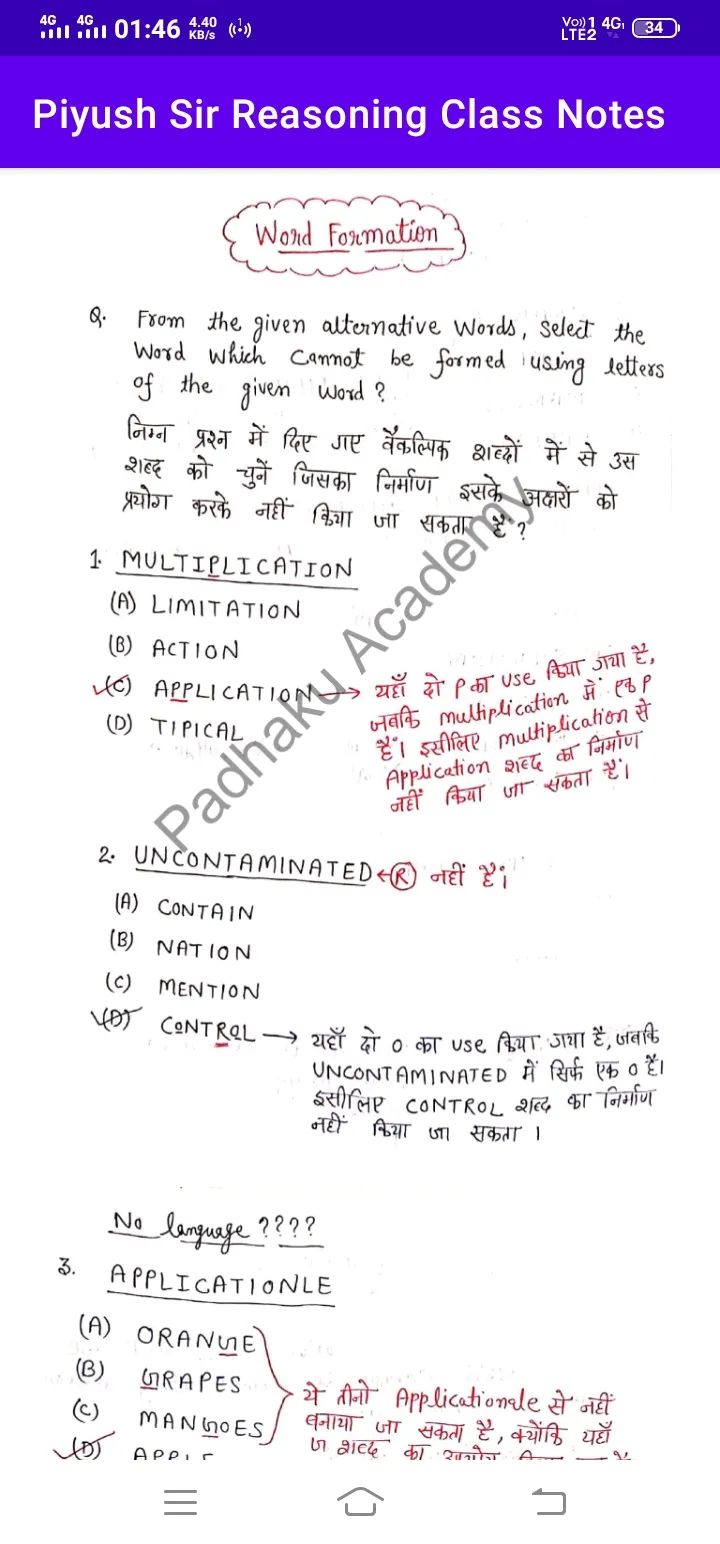 4G 4G 01:46 4.40 KB/s
Vo)) 1 4G LTE2 34
Piyush Sir Reasoning Class Notes
Word Formation
Q. From the given alternative Words, Select the
Word which Cannot be formed using letters
of the given Word?
निम्न प्रश्न में दिए गए वैकल्पिक शब्दों में से उस
शब्द को चुनें जिसका निर्माण इसके अक्षरों को
प्रयोग करके नहीं किया जा सकता है?
1. MULTIPLICATION
(A) LIMITATION
(B) ACTION
(C) APPLICATION → यहाँ दो P का use किया गया है,
जबकि multiplication में एक P
है। इसीलिए multiplication से
Application शब्द का निर्माण
नहीं किया जा सकता है।
(D) TIPICAL
Padhaku Academy
2. UNCONTAMINATED ← R नहीं है।
(A) CONTAIN
(B) NATION
(C) MENTION
(D) CONTROL → यहाँ दो O का use किया गया है, जबकि
UNCONTAMINATED में सिर्फ एक O है।
इसीलिए CONTROL शब्द का निर्माण
नहीं किया जा सकता ।
No language ????
3. APPLICATIONLE
(A) ORANGE
(B) GRAPES
(C) MANGOES
ये तीनो Applicationale से नहीं
बनाया जा सकता है, क्योंकि यहाँ
शब्द का
(D) APPLE